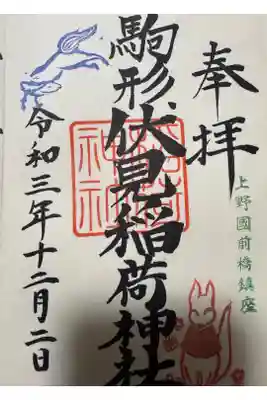 奉拝
上野國前橋鎮座
駒形、伏見稲荷神社
令和三年十二月二日